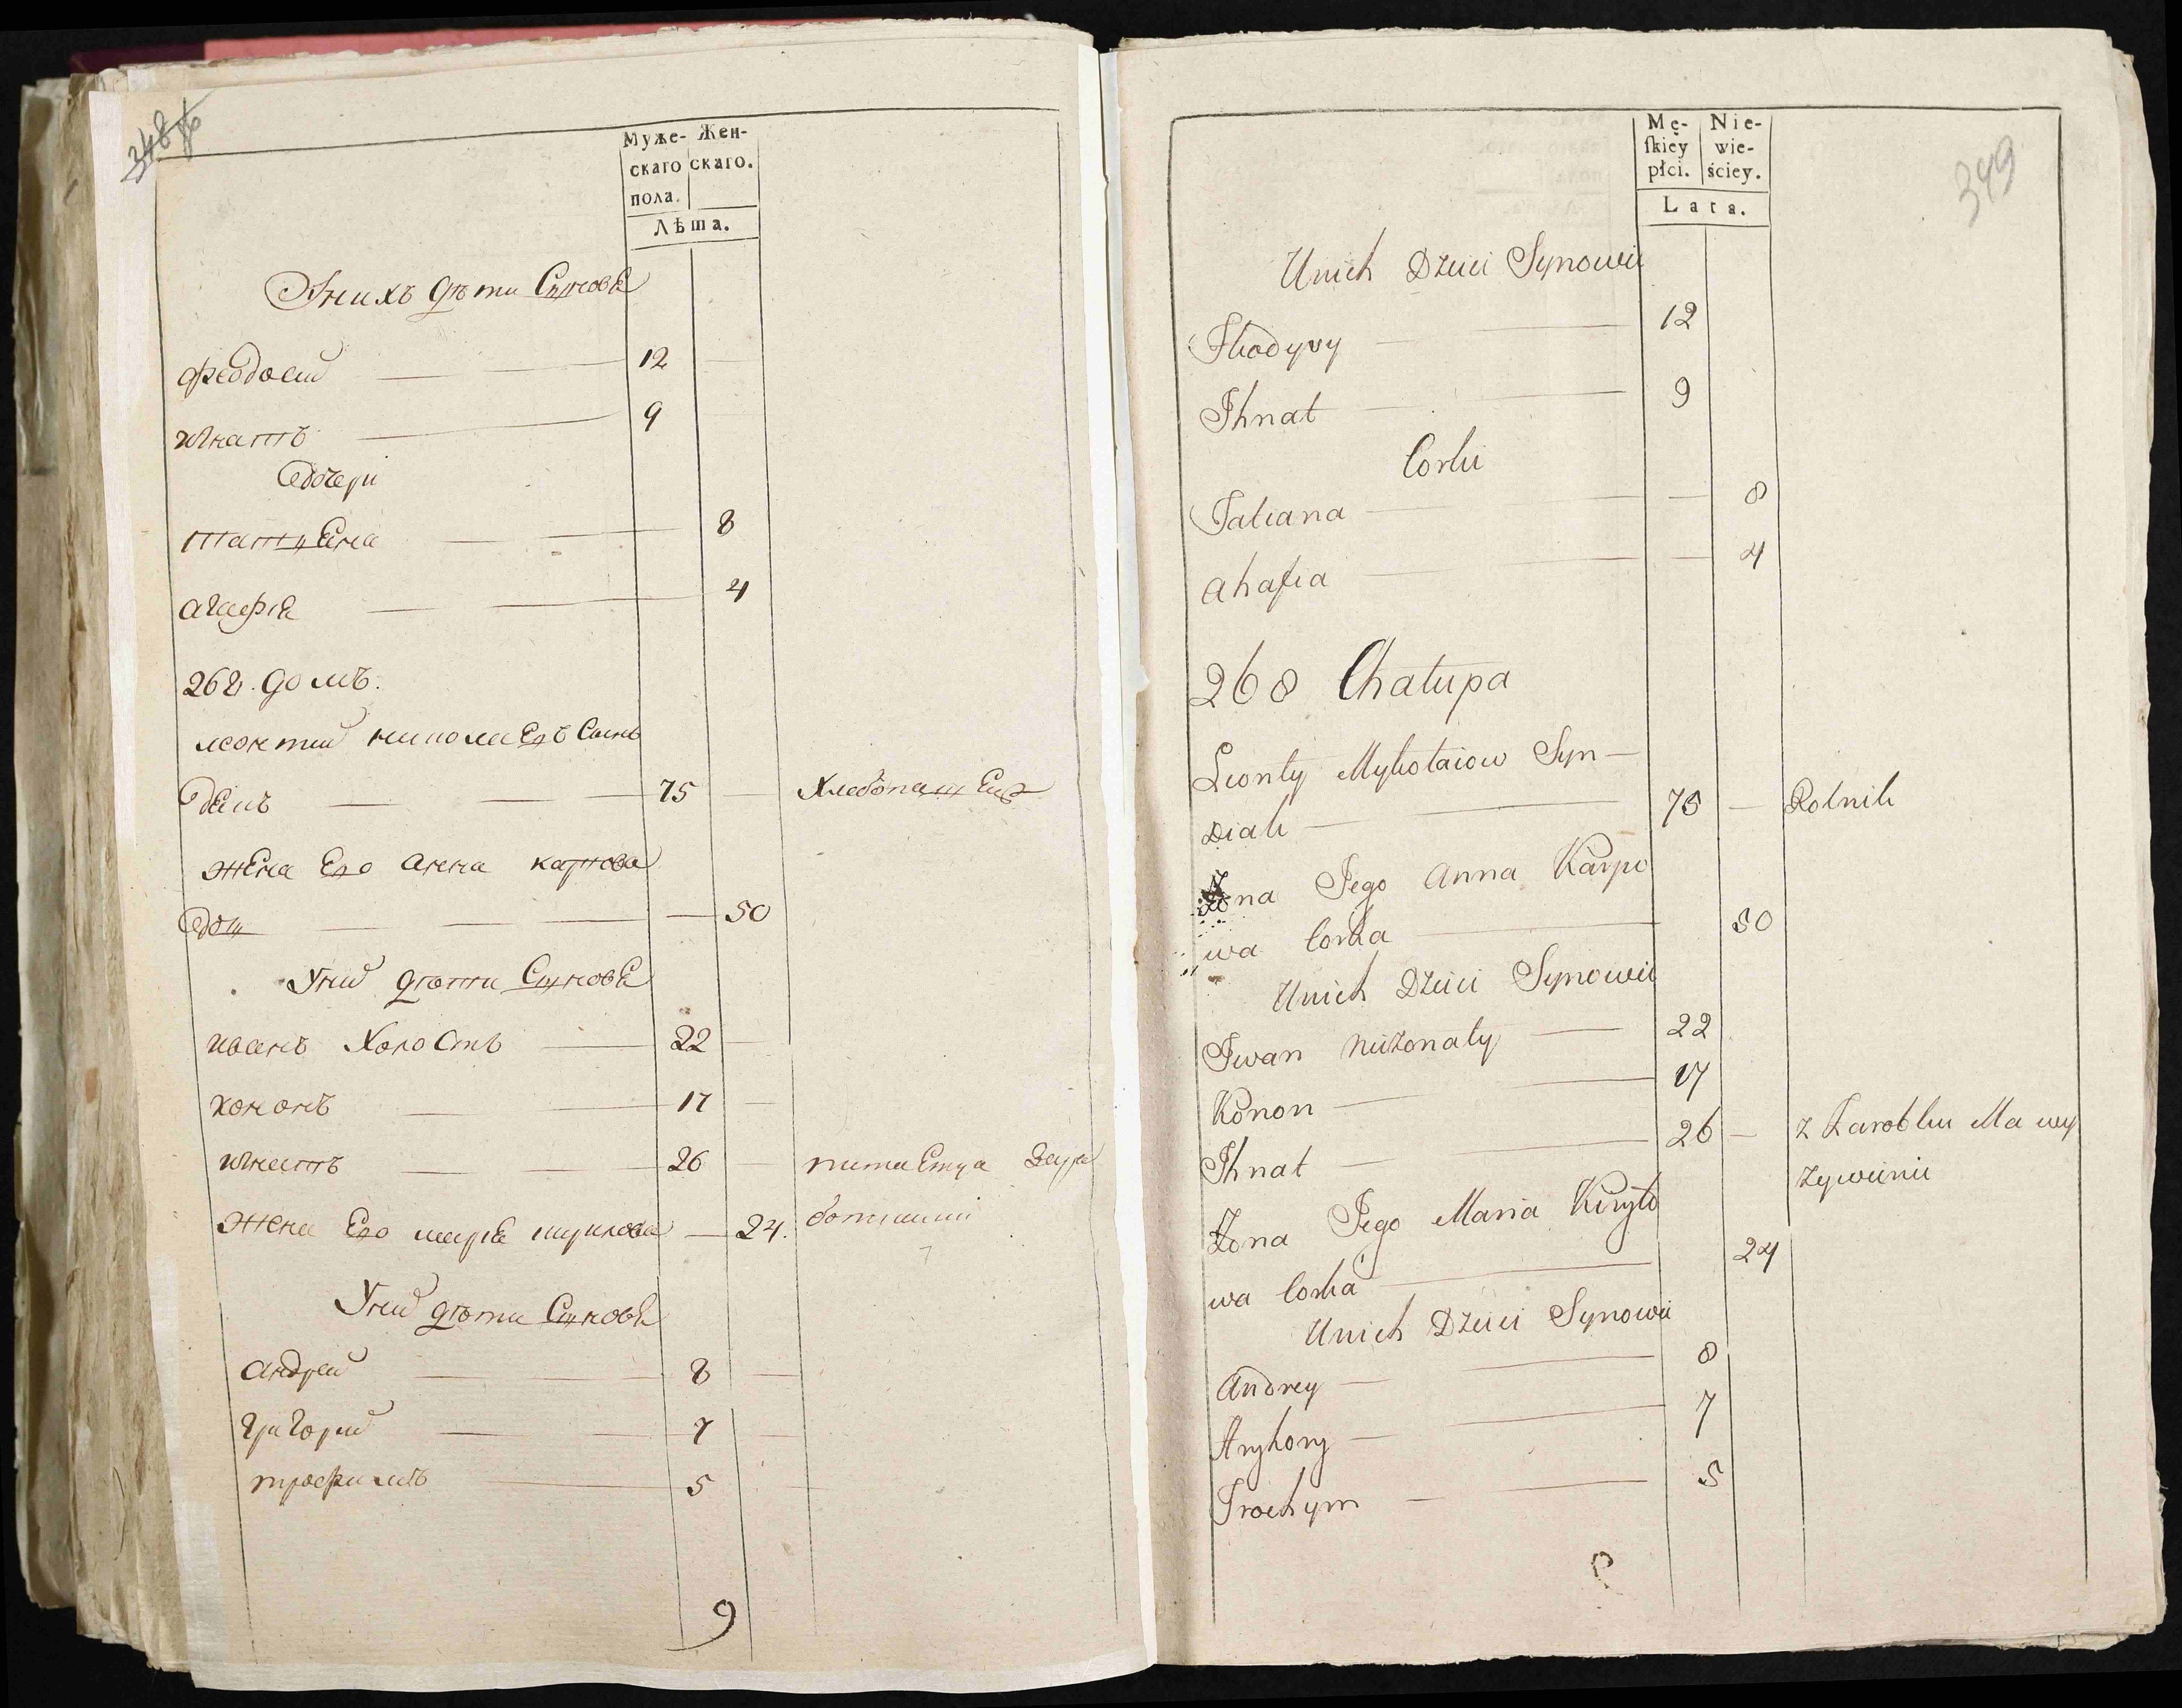 348 об
Муже- Жен-
скаго скаго.
пола.
Лѣта.
У нихъ дѣти Сыновя
Феодосий 12
игнатъ 9
дочери
татияна 8
агафия 4
268. домъ.
леонтий николаевъ Сынъ
75 Хлебопашецъ
жена Его анна карпова
дочь 50
У ний дѣти Сыновя
иванъ Холостъ 22
кононъ 17
игнатъ 26 питается зара
жена Его марья 24. ботками
У ний дѣти Сыновя
андрей 8
григорий 7
трофимъ 5
9
349
Mę- Nie-
ſkiey wie-
płci. ściey.
Lata.
Unich Dzieci Synowie
12
Ihnat 9
Corki
Tatiana 8
ahafia 4
268 Chałupa
Leonty Mykołaiow Syn
Diak 75 Rolnik
Zona Iego anna Karpo
wa Corka 50
Unich Dzieci Synowie
Iwan nieżonaty 22
Konon 17
Ihnat 26 z Zarobku Ma wy
zywienie
Zona Iego Maria Kiryło
wa Corka 24
Unich Dzieci Synowie
Andrey 8
Hryhory 7
Trochym 5